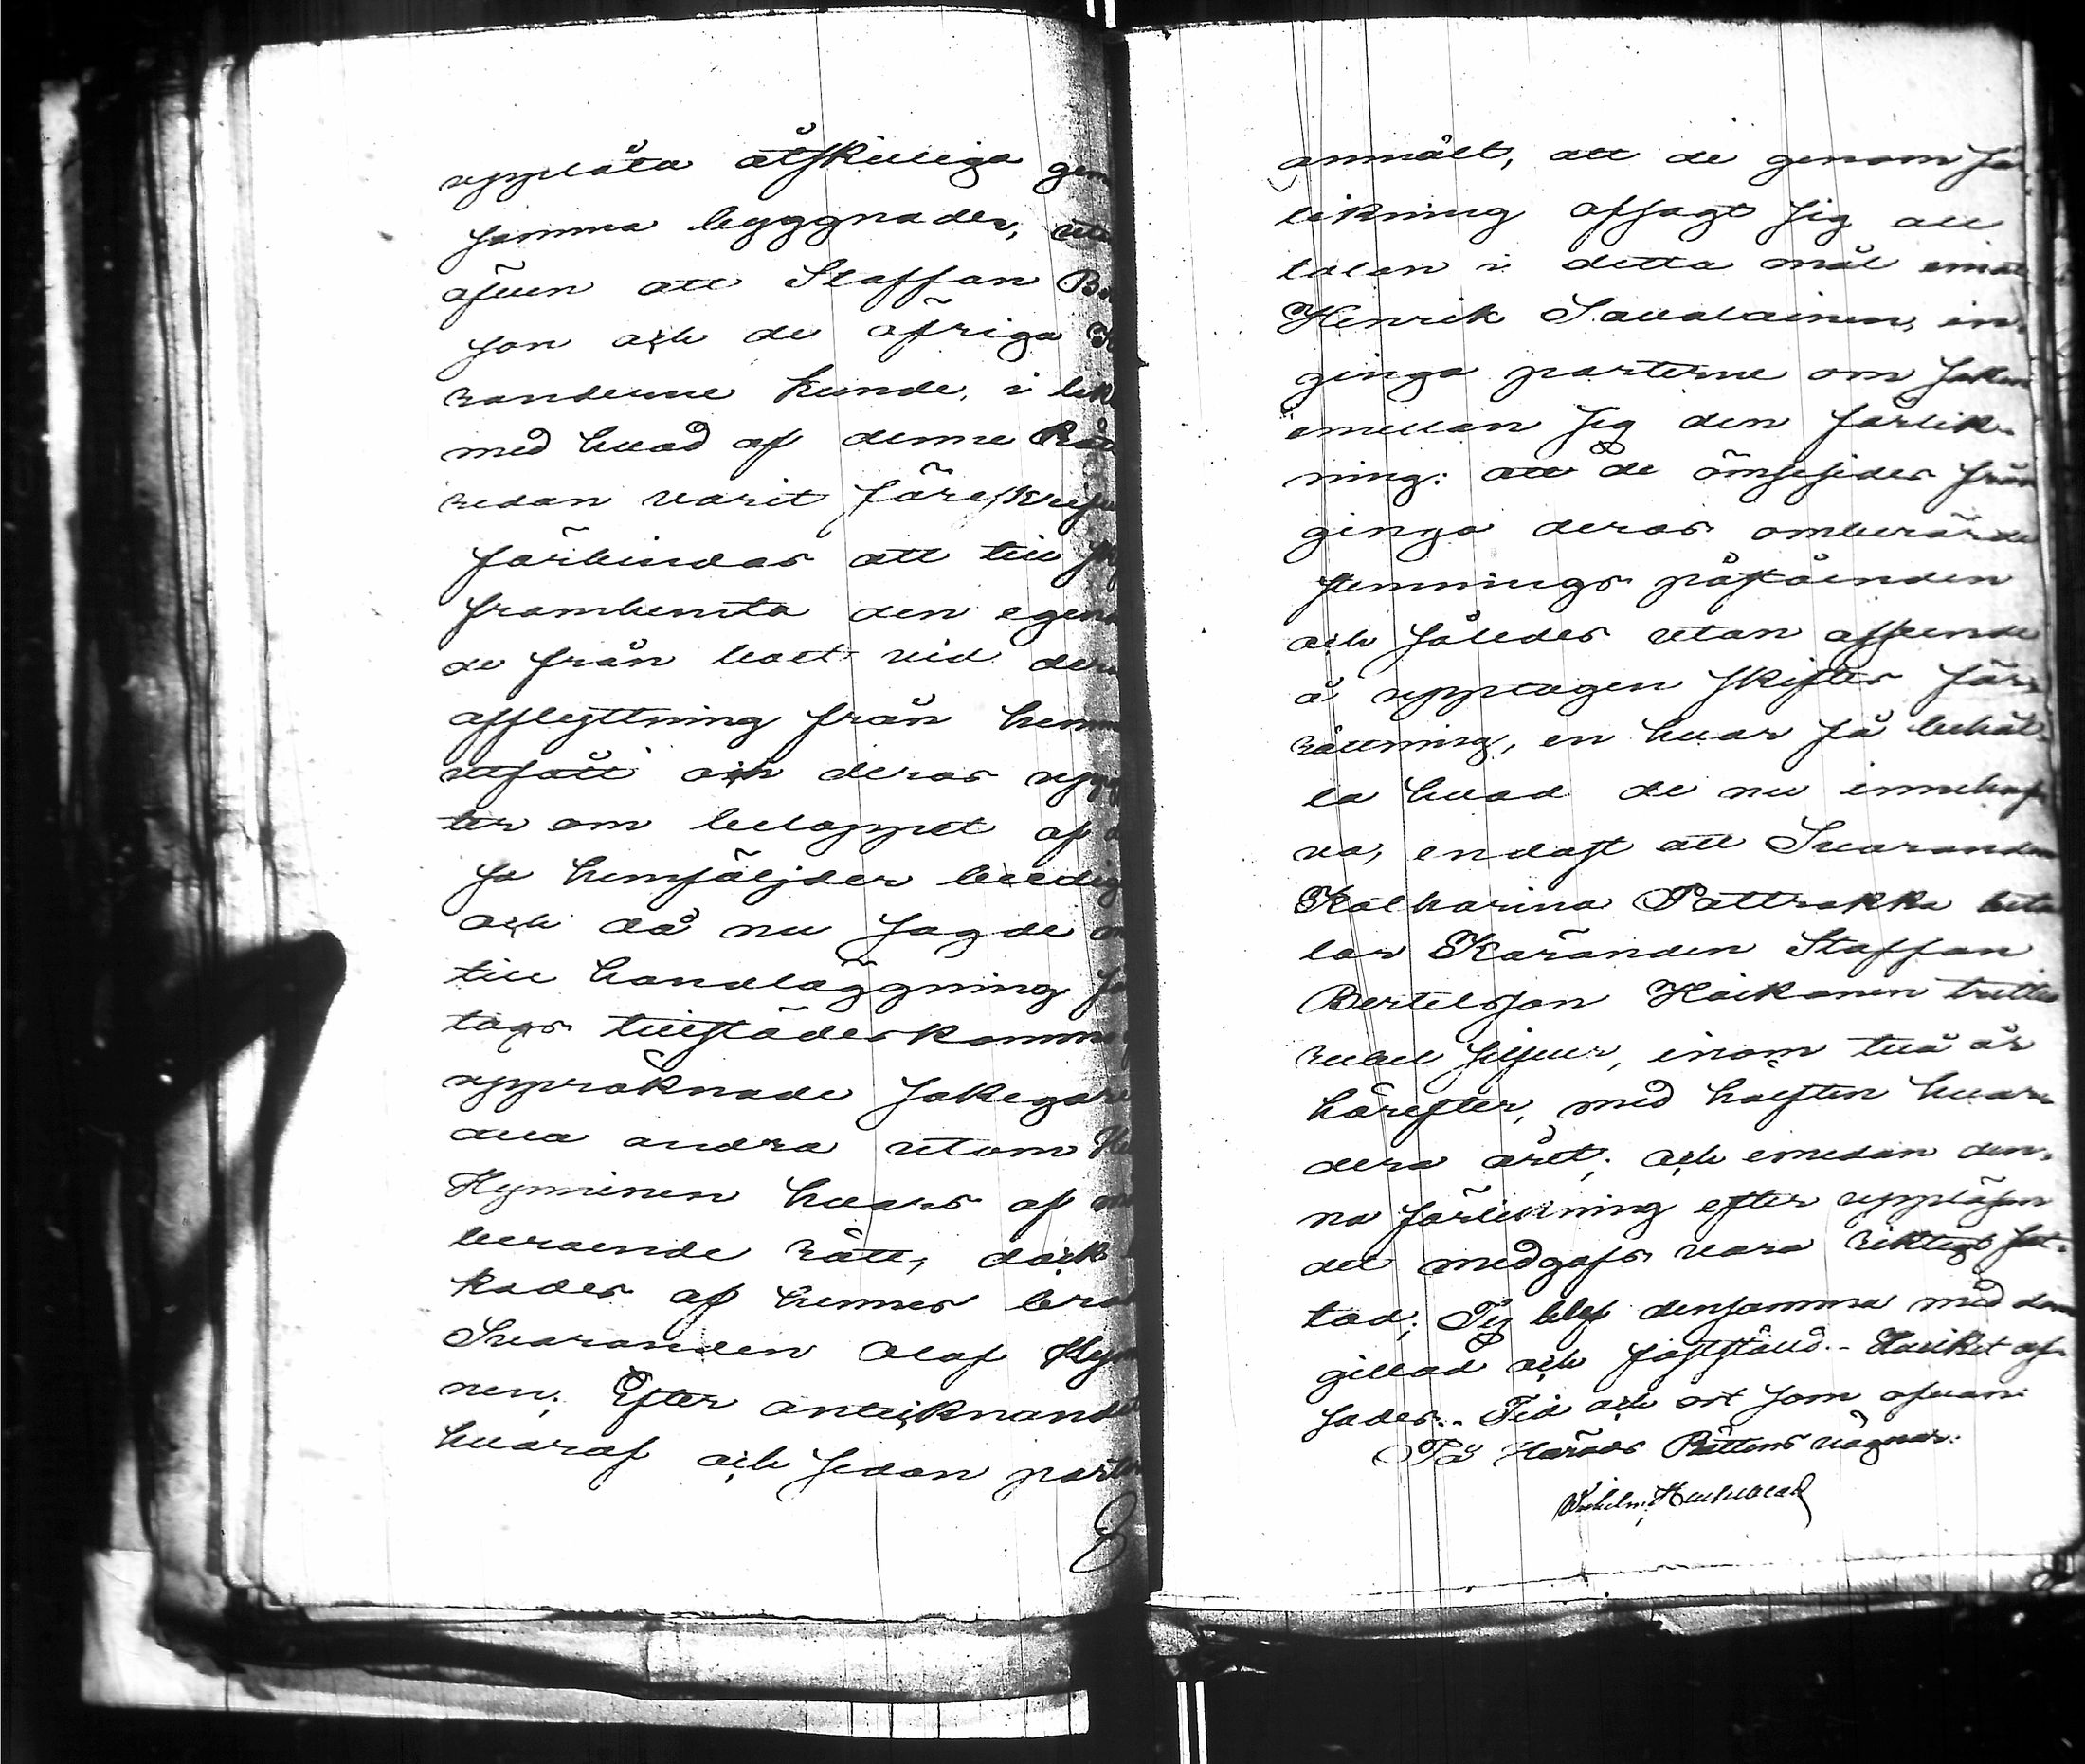 upplåta åtskilliga gem
samma byggnader, uta
äfven att Staffan Be
son och de öfriga K
randerne kunde, i lik
med hvad af denne Rätt
redan varit föreskrifve
förbindas att till
frambemta den egen
de från boet vid der
afflyttning från hem
utfått och deras upp
ter om beloppet af
sa hemföljder beedig
och då nu sagde
till handläggning
tags tillstädeskomm
uppräknade sakegare
alla andra utom He
Hynninen hvars af
beroende rätt, dock
kades af hennes bro
Svaranden Olof Hyn
nen; Efter antecknande
hvaraf och sedan parter
anmält, att de genom för-
likning afsagt sig all
talan i detta mål emot
Henrik Savalainen, in-
gingo parterne om saken
emellan sig den förlik-
ning: att de ömsesides från
gingo deras omberörde
stemnings påståenden
och således utan afseende
å upptagen skiftes för-
rättning, en hvar få behål-
la hvad de nu innehaf-
va, endast att Svaranden
Katharina Pattrakka beta-
lar Käranden Staffan
Bertelsson Hoikanen trettio
rubel silfver, inom två år
härefter, med hälften hvar-
dera året; och emedan den-
na förlikning efter uppläsan
det medgafs vara riktigt fat-
tad; Ty blef densamma med dom
gillad och fastställd. - Hvilket af-
sades. - Tid och ort som ofvan.
På Härads Rättens vägnar:
Wilhelm